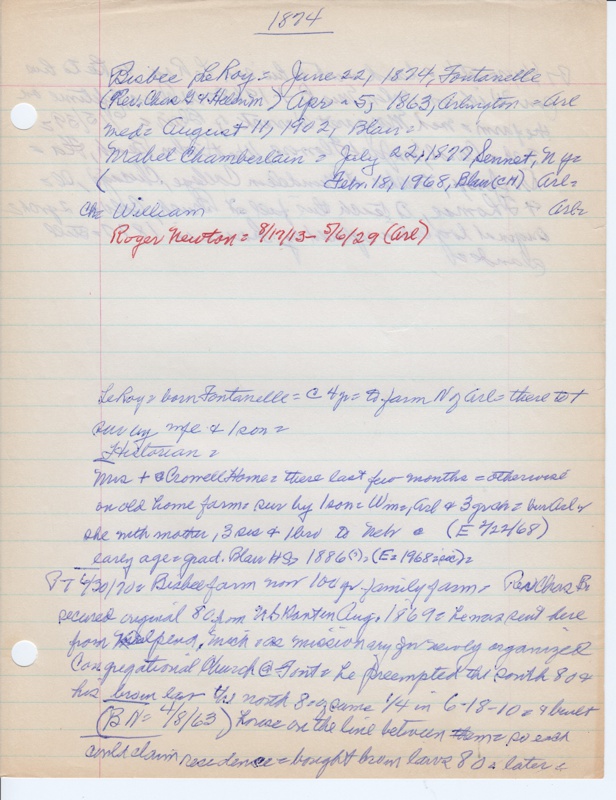 1874
Bisbee LeRoy = June 22, 1874, Fontanelle
(Rev. Chas G & Helen M.) Apr. 5, 1863, Arlington = Arl
med = August 11, 1902, Blair =
Mabel Chamberlain = July 22, 1877, Sennet, N.Y. =
( Feb. 18, 1968, Blair (CH) Arl =
Ch = William Arl =
Roger Newton = 8/17/13 - 5/6/29 (Arl)
LeRoy = born Fontanelle = @ 4 yr = to farm N of Arl = there to +
sur by wife & 1 son =
Historian =
Mrs + @ Crowell Home = there last few months = otherwise
on old home farm = sur by 1 son = Wm, Arl & 3 grch = bur Arl =
she with mother, 3 sis & 1 bro to Nebr @ (E 2/22/68)
early age = grad. Blair HS 1886(?) = (E = 1968 =
PT 4/20/70 = Bisbee farm now 100 yr. family farm = Rev Chas B.
secured original 80 from in Aug, 1869 = he was sent here
from Mich = as missionary for newly organized
Congregational Church @ Font = he preempted the south 80 &
his bro in law the north 80 of same 1/4 in 6-18-10 = & built
(BN = 4/8/63) house on the line between them = so each
could claim residence = bought bro in laws 80 later =